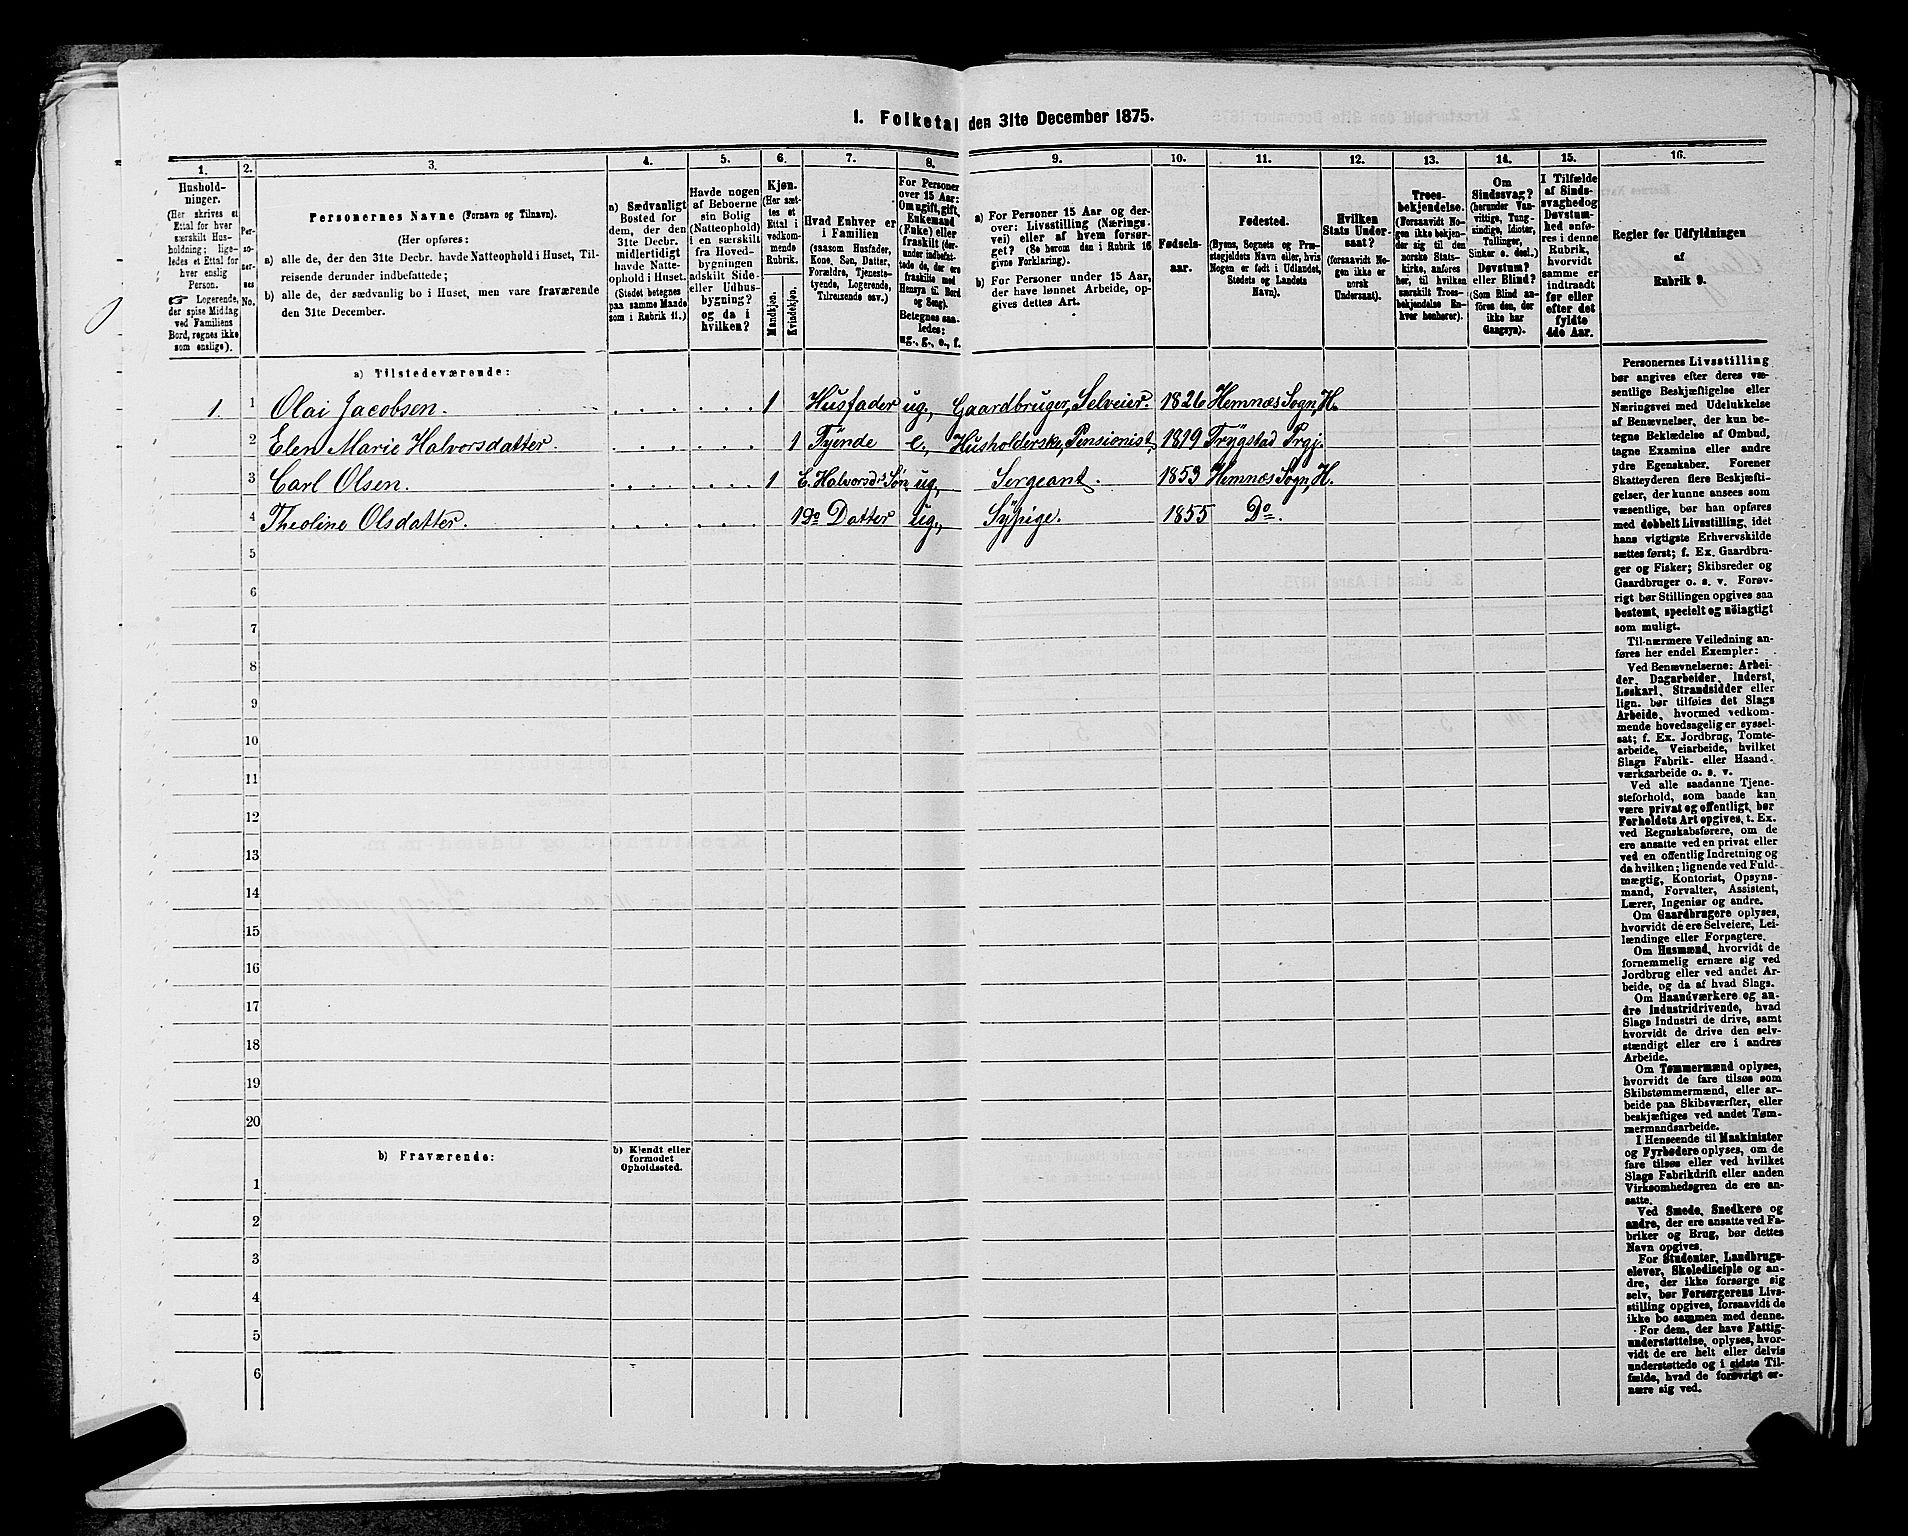 1. Folketal den 31te December 1875.
1. 2. 3. 4. 5. 6. 7. 8. 9. 10. 11. 12. 13. 14. 15. 16.
Hushold-
ninger.
(Her skrives et
Ettal for hver
særskilt Hus-
holdning; lige-
ledes et Ettal for
hver enslig
Person.
☛ Logerende,
der spise Middag
ved Familiens
Bord, regnes ikke
som enslige).
Per-
so-
ner-
nes
No.
Personernes Navne (Fornavn og Tilnavn).
(Her opføres:
a) alle de, der den 31te Decbr. havde Natteophold i Huset, Til-
reisende derunder indbefattede;
b) alle de, der sædvanlig bo i Huset, men vare fraværende
den 31te December.
a) Sædvanligt
Bosted for
dem, der den
31te Decbr.
midlertidigt
havde Natte-
ophold i Huset.
(Stedet betegnes
paa samme Maade
som i Rubrik 11.)
Havde nogen
af Beboerne
sin Bolig
(Natteophold)
i en særskilt
fra Hoved-
bygningen
adskilt Side-
eller Udhus-
bygning?
og da i
hvilken?
Kjøn.
(Her sæt-
tes et
Ettal i
vedkom-
mende
Rubrik.
Mandkjøn.
Kvindekjøn.
Hvad Enhver er
i Familien
(saasom Husfader,
Kone, Søn, Datter,
Forældre, Tjeneste-
tyende, Logerende,
Tilreisende osv.)
For Personer
over 15 Aar:
Om ugift, gift,
Enkemand
(Enke) eller
fraskilt (der-
under indbefat-
tede de, der ere
fraskilte med
Hensyn til Bord
og Seng).
Betegnes saa-
ledes:
ug., g., e., f.
a) For Personer 15 Aar og der-
over: Livsstilling (Nærings-
vei) eller af hvem forsør-
get? (Se herom den i Rubrik 16
givne Forklaring).
b) For Personer under 15 Aar,
der have lønnet Arbeide, op-
gives dettes Art.
Fødsels-
aar.
Fødested.
(Byens, Sognets og Præ-
stegjeldets Navn eller, hvis
Nogen er født i Udlandet,
Stedets og Landets
Navn).
Hvilken
Stats Under-
saat?
(forsaavidt No-
gen ikke er
norsk
Undersaat).
Troes-
bekjendelse.
(Forsaavidt No-
gen ikke bekjen-
der sig til den
norske Stats-
kirke, anføres
her, til hvilken
særskilt Troes-
bekjendelse En-
hver henhører).
Om
Sindssvag?
(herunder Van-
vittige, Tung-
sindige, Idioter,
Tullinger,
Sinker o. desl.)
Døvstum?
eller Blind?
(Som Blind an-
føres den, der
ikke har
Gangsyn).
I Tilfælde
af Sinds-
svaghed og
Døvstum-
hed anfø-
res i denne
Rubrik,
hvorvidt
samme er
indtraadt
før eller
efter det
fyldte
4de Aar.
Regler for Udfyldningen
af
Rubrik 9.
a) Tilstedeværende:
1 1 Olai Jacobsen. 1 Husfader ug., Gaardbruger, Selveier. 1826 Hemnæs Sogn, H.
2 Elen Marie Halvorsdatter 1 Tyende e., Husholderske, Pensionist, 1819 Trygstad Prgj.
3 Carl Olsen. 1 E. Halvorsd.s Søn ug., Sergeant. 1853 Hemnæs Sogn, H.
4 Theoline Olsdatter. 1 Do Datter ug., Sypige. 1855 Do.
5
6
7
8
9
10
11
12
13
14
15
16
17
18
19
20
b) Fraværende:
b) Kjendt eller
formodet
Opholdssted.
1
2
3
4
5
6
Personernes Livsstilling
bør angives efter deres væ-
sentlige Beskjæftigelse eller
Næringsvei med Udelukkelse
af Benævnelser, der kun be-
tegne Beklædelse af Ombud,
tagne Examina eller andre
ydre Egenskaber. Forener
Skatteyderen flere Beskjæfti-
gelser, der kunne ansees som
væsentlige, bør han opføres
med dobbelt Livsstilling, idet
hans vigtigste Erhvervskilde
sættes først; f. Ex. Gaardbru-
ger og Fisker; Skibsreder og
Gaardbruger o. s. v. Forøv-
rigt bør Stillingen opgives saa
bestemt, specielt og nøiagtigt
som muligt.
Til nærmere Veiledning an-
føres her endel Exempler:
Ved Benævnelserne: Arbei-
der, Dagarbeider, Inderst,
Løskarl, Strandsidder eller
lign. bør tilføies det Slags
Arbeide, hvormed vedkom-
mende hovedsagelig er syssel-
sat; f. Ex. Jordbrug, Tomte-
arbeide, Veiarbeide, hvilket
Slags Fabrik- eller Haand-
værksarbeide o. s. v.
Ved alle saadanne Tjene-
steforhold, som baade kan
være privat og offentligt, bør
Forholdets Art opgives, t. Ex.
ved Regnskabsførere, om de
ere ansatte ved en privat eller
ved en offentlig Indretning og
da hvilken; lignende ved Fuld-
mægtig, Kontorist, Opsyns-
mand, Forvalter, Assistent,
Lærer, Ingeniør og andre.
Om Gaardbrugere oplyses,
hvorvidt de ere Selveiere, Lei-
lændinge eller Forpagtere.
Om Husmænd, hvorvidt de
fornemmelig ernære sig ved
Jordbrug eller ved andet Ar-
beide, og da af hvad Slags.
Om Haandværkere og an-
dre Industridrivende, hvad
Slags Industri de drive, samt
hvorvidt de drive den selv-
stændigt eller ere i andres
Arbeide.
Om Tømmermænd oplyses,
hvorvidt de fare tilsøs som
Skibstømmermænd, eller ar-
beide paa Skibsværfter, eller
beskjæftiges ved andet Tøm-
mermandsarbeide.
I Henseende til Maskinister
og Fyrbødere oplyses, om de
fare tilsøs eller ved hvilket
Slags Fabrikdrift eller anden
Virksomhedsgren de ere an-
satte.
Ved Smede, Snedkere og
andre, der ere ansatte ved Fa-
briker og Brug, bør dettes
Navn opgives.
For Studenter, Landbrugs-
elever, Skoledisciple og an-
dre, der ikke forsørge sig
selv, bør Forsørgerens Livs-
stilling opgives, forsaavidt de
ikke bo sammen med denne.
For dem, der have Fattig-
understøttelse, oplyses, hvor-
vidt de ere helt eller delvis
understøttede og i sidste Til-
fælde, hvad de forøvrigt er-
nære sig ved.